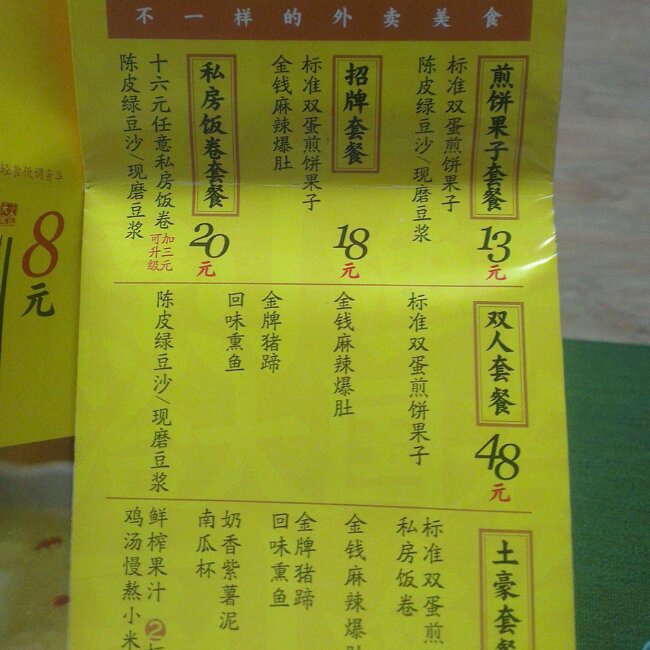 不一样的外卖美食
煎饼果子套餐
13元
标准双蛋煎饼果子
陈皮绿豆沙/现磨豆浆
招牌套餐
18元
标准双蛋煎饼果子
金钱麻辣爆肚
私房饭卷套餐
20元
十六元任意私房饭卷
加三元
可升级
陈皮绿豆沙/现磨豆浆
双人套餐
48元
标准双蛋煎饼果子
金钱麻辣爆肚
金牌猪蹄
回味熏鱼
陈皮绿豆沙/现磨豆浆
土豪套餐
标准双蛋煎
私房饭卷
金钱麻辣爆
金牌猪蹄
回味熏鱼
奶香紫薯泥
南瓜杯
鲜榨果汁2
鸡汤慢熬小米
轻食低调奢华
8元